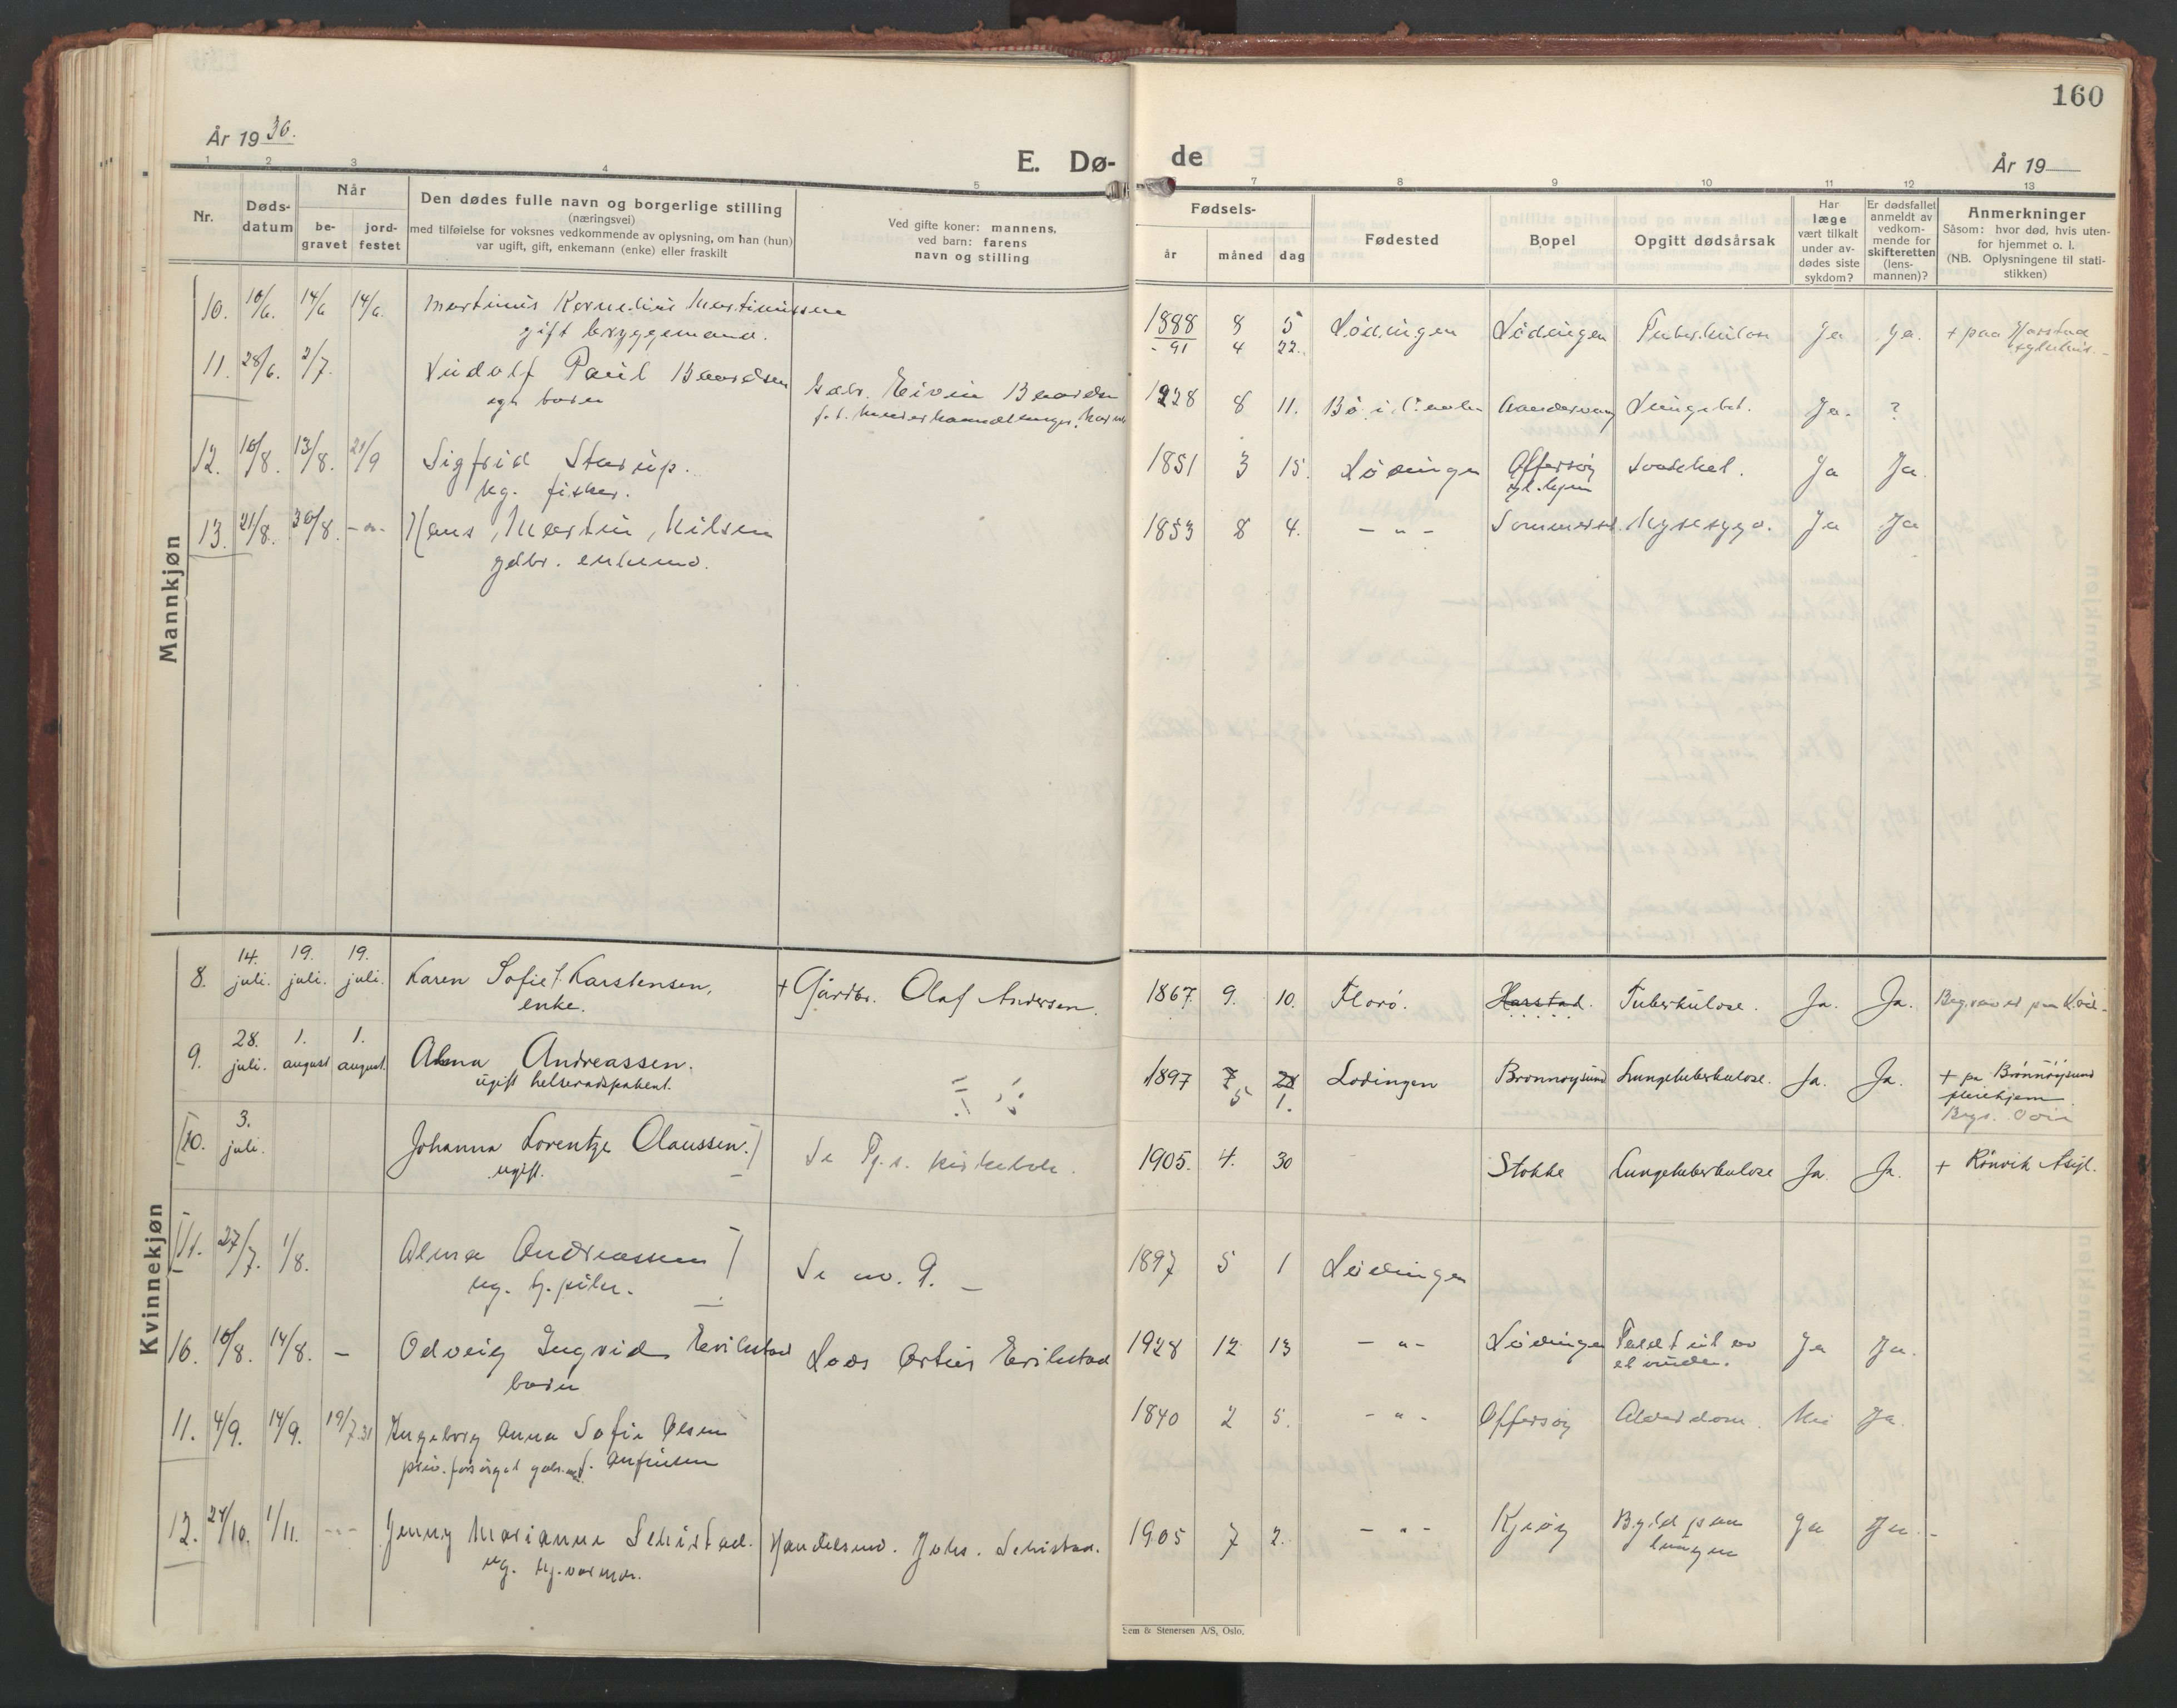 160
År 1930.
E. Dø-
de
År 19
1 2 3 4 5
7 8 9 10 11 12 13
Nr.
Døds-
datum
Når
be-
gravet
jord-
festet
Den dødes fulle navn og borgerlige stilling
(næringsvei)
med tilføielse for voksnes vedkommende av oplysning, om han (hun)
var ugift, gift, enkemann (enke) eller fraskilt
Ved gifte koner: mannens,
ved barn: farens
navn og stilling
Fødsels-
år måned dag
Fødested
Bopel
Opgitt dødsårsak
Har
læge
vært tilkalt
under av-
dødes siste
sykdom?
Er dødsfallet
anmeldt av
vedkom-
mende for
skifteretten
(lens-
mannen)?
Anmerkninger
Såsom: hvor død, hvis uten-
for hjemmet o. l.
(NB. Oplysningene til stati-
stikken)
Mannkjøn
10. 10/6. 14/6 14/6. Martinus Kornelius Martinussen 1888 8 5 Lødingen Lødingen Tuberkulose Ja Ja. + paa Harstad
gift bryggemand. -91 4 22. sykehus.
11. 28/6. 2/7. Vidolf Paul Baardsen Gabr. Eivin Baardsen 1928 8 11. Bø i Lungebet. Ja. ?
egte barn
12. 10/8. 13/8. 21/9 Sigfrid Starup. 1851 3 15. Lødingen Offersøy Ja Ja.
ug. fisker.
13. 21/8. 30/8. -"- Hans Martin Nilsen 1853 8 4. - " - Nyresyge. Ja Ja
gdbr. enkemd.
Kvinnekjøn
8. 14. juli. 19. juli. 19. juli. Karen Sofie f. Karstensen, + Gårdbr. Olaf Andersen. 1867. 9. 10. Florø. Harstad. Tuberkulose. Ja. Ja.
enke.
9. 28. juli. 1. august 1. august. Alma Andreassen. 1897 7 28 Lødingen Brønnøysund Lungetuberkulose. Ja. Ja. + pa Brønnøysund
ugift helseradspatient. 5 1. pleiehjem.
10. 3. juli. Johanna Lorentze Olaussen. Se Pj.s. kirkebok. 1905. 4. 30 Stokke Lungetuberkulose Ja Ja. + Rønvik Asyl.
ugift.
11. 27/7. 1/8. Alma Andreassen Se no. 9. - 1897 5 1 Lødingen
10. 10/8. 14/8. - Odveig Ingrid Erikstad Lars Artur Erikstad 1928 12 13 - " - Lødingen Faldt ut av Ja Ja.
barn et vindu.
11. 4/9. 14/9. 19/7.31 Ingeborg Anna Sofie Olsen 1840 2 5. - " - Offersøy Alderdom. Nei Ja.
12. 24/10. 1/11. - " - Jenny Marianne Schistad. Handelsmd. Johs. Schistad. 1905 7 2. - " - Kjeøy Byld paa Ja Ja. -
ug. lungen
Sem & Stenersen A/S, Oslo.